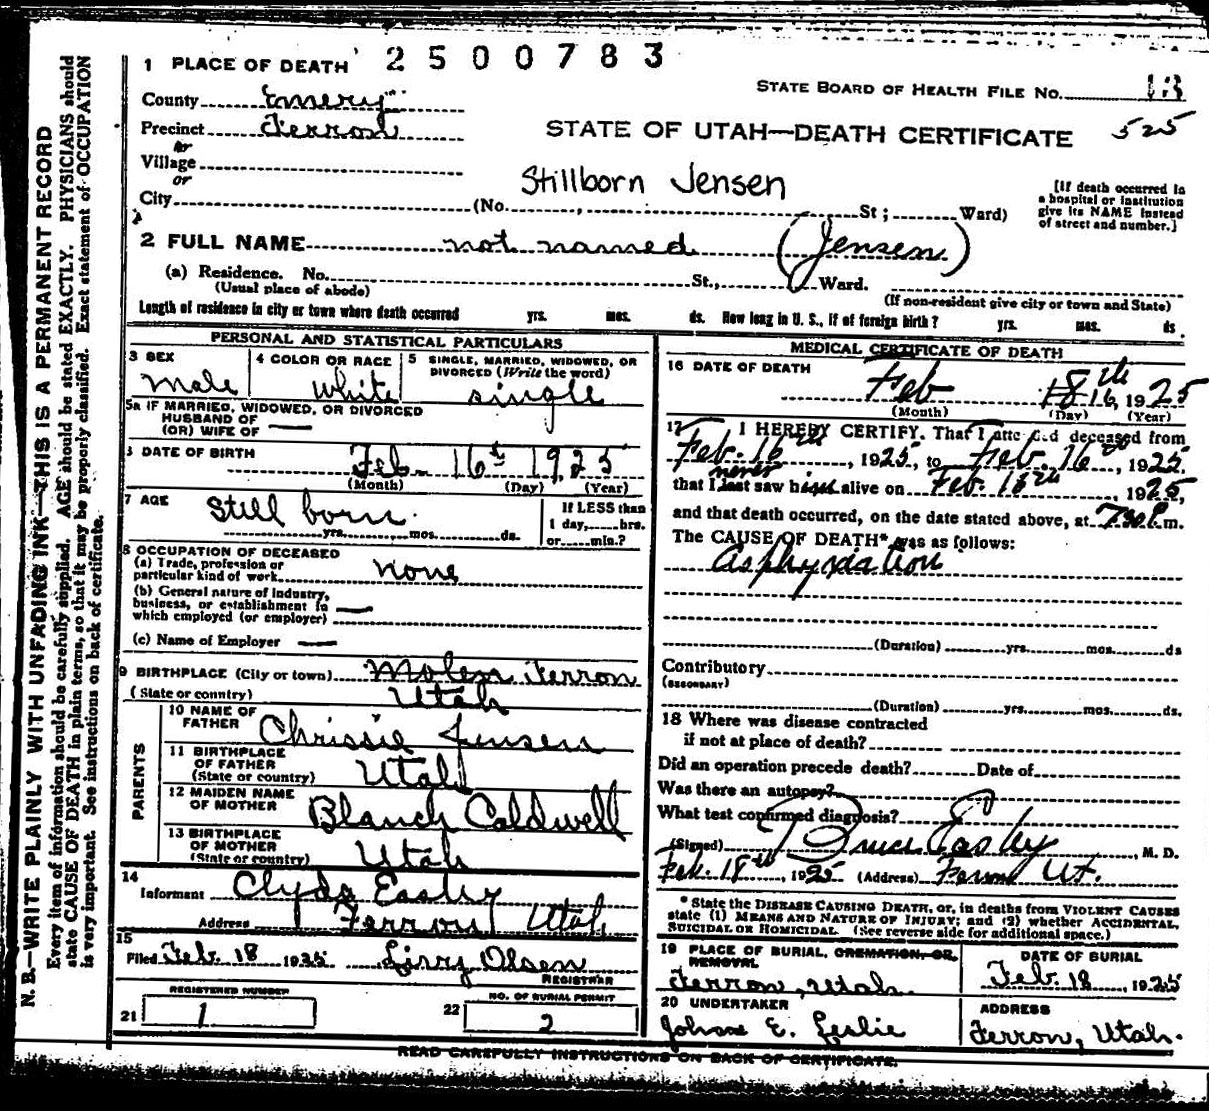 2500783
1 PLACE OF DEATH
STATE BOARD OF HEALTH FILE NO. 13
County Emery
525
Precinct Ferron
STATE OF UTAH—DEATH CERTIFICATE
or
Village
or
Stillborn Jensen
City (No. , St; Ward)
[If death occurred in a hospital or institution give its NAME instead of street and number.]
2 FULL NAME not named (Jensen)
(a) Residence. No. St., Ward.
(Usual place of abode)
(If non-resident give city or town and State)
Length of residence in city or town where death occurred yrs. mos. ds. How long in U. S., if of foreign birth? yrs. mos. ds.
PERSONAL AND STATISTICAL PARTICULARS
3 SEX Male
4 COLOR OR RACE White
5 SINGLE, MARRIED, WIDOWED, OR DIVORCED (Write the word) single
5a IF MARRIED, WIDOWED, OR DIVORCED
HUSBAND OF
(OR) WIFE OF —
DATE OF BIRTH Feb. 16th 1925
(Month) (Day) (Year)
7 AGE Still born.
yrs. mos. ds.
If LESS than
1 day, hrs.
or min.?
8 OCCUPATION OF DECEASED
(a) Trade, profession or
particular kind of work None
(b) General nature of industry,
business, or establishment in —
which employed (or employer)
(c) Name of Employer —
9 BIRTHPLACE (City or town) Molen Ferron
(State or country) Utah
PARENTS
10 NAME OF FATHER Chrissie Jensen
11 BIRTHPLACE OF FATHER (State or country) Utah
12 MAIDEN NAME OF MOTHER Blanch Caldwell
13 BIRTHPLACE OF MOTHER (State or country) Utah
14 Informant Clyde Easley
Address Ferron Utah
15 Filed Feb. 18 1925 Lizzy Olsen
REGISTRAR
21 REGISTERED NUMBER 1
22 NO. OF BURIAL PERMIT 2
MEDICAL CERTIFICATE OF DEATH
16 DATE OF DEATH
Feb 18th 16, 1925
(Month) (Day) (Year)
17 I HEREBY CERTIFY, That I attended deceased from
Feb. 16th, 1925, to Feb. 16th, 1925.
never
that I last saw him alive on Feb. 16th, 1925,
and that death occurred, on the date stated above, at 7:30 P.m.
The CAUSE OF DEATH* was as follows:
Asphyxiation
(Duration) yrs. mos. ds
Contributory
(SECONDARY)
(Duration) yrs. mos. ds.
18 Where was disease contracted
if not at place of death?
Did an operation precede death? Date of
Was there an autopsy?
What test confirmed diagnosis?
(Signed) Bruce Easley, M. D.
Feb. 18th, 1925 (Address) Ferron Ut.
* State the DISEASE CAUSING DEATH, or, in deaths from VIOLENT CAUSES
state (1) MEANS AND NATURE OF INJURY; and (2) whether ACCIDENTAL,
SUICIDAL OR HOMICIDAL. (See reverse side for additional space.)
19 PLACE OF BURIAL, CREMATION, OR REMOVAL
Ferron, Utah.
DATE OF BURIAL
Feb. 18, 1925
20 UNDERTAKER
E. Leslie
ADDRESS
Ferron, Utah.
READ CAREFULLY INSTRUCTIONS ON BACK OF CERTIFICATE.
N. B.—WRITE PLAINLY WITH UNFADING INK—THIS IS A PERMANENT RECORD
Every item of information should be carefully supplied. AGE should be stated EXACTLY. PHYSICIANS should
state CAUSE OF DEATH in plain terms, so that it may be properly classified. Exact statement of OCCUPATION
is very important. See instructions on back of certificate.